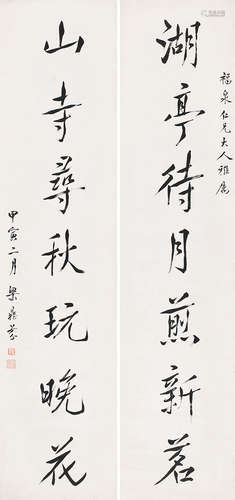 福泉仁兄大人雅属
湖亭待月煎新茗
山寺尋秋玩晚花
甲寅二月 梁鼎芬